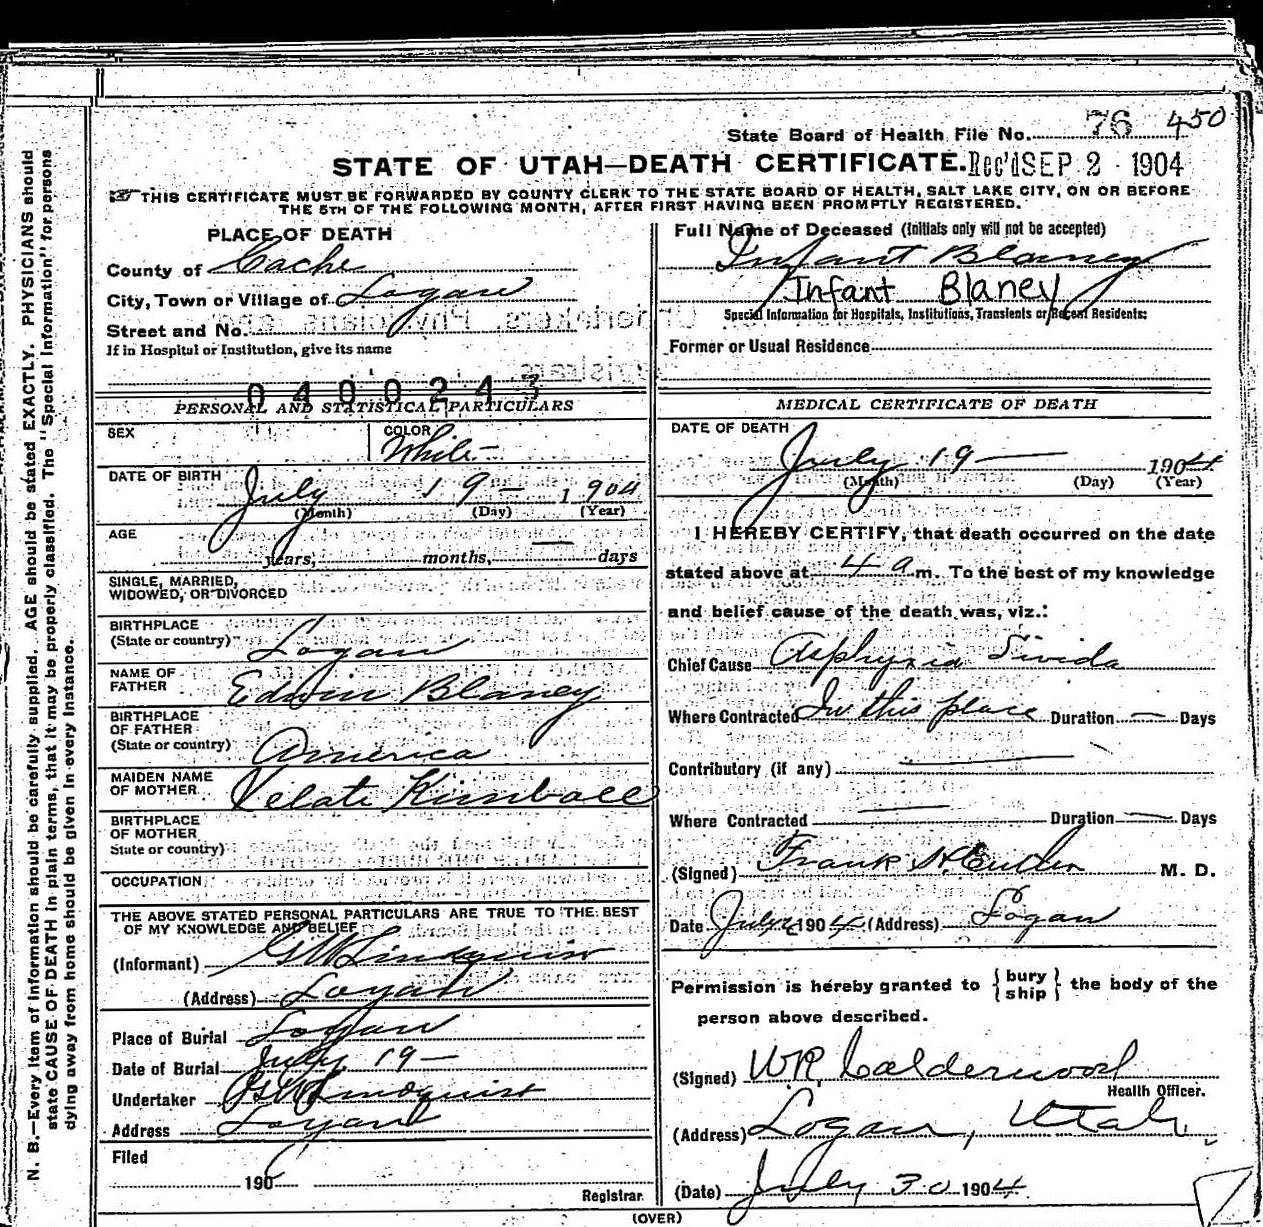 State Board of Health File No. 76 450
STATE OF UTAH—DEATH CERTIFICATE. Rec'd SEP 2 - 1904
THIS CERTIFICATE MUST BE FORWARDED BY COUNTY CLERK TO THE STATE BOARD OF HEALTH, SALT LAKE CITY, ON OR BEFORE
THE 5TH OF THE FOLLOWING MONTH, AFTER FIRST HAVING BEEN PROMPTLY REGISTERED.
N. B.—Every item of information should be carefully supplied. AGE should be stated EXACTLY. PHYSICIANS should
state CAUSE OF DEATH in plain terms, that it may be properly classified. The "Special Information" for persons
dying away from home should be given in every instance.
PLACE OF DEATH
County of Cache
City, Town or Village of Logan
Street and No.
If in Hospital or Institution, give its name
0400243
PERSONAL AND STATISTICAL PARTICULARS
SEX
COLOR White
DATE OF BIRTH July 19 — 1904
(Month) (Day) (Year)
AGE
years, months, — days
SINGLE, MARRIED,
WIDOWED, OR DIVORCED
BIRTHPLACE
(State or country) Logan
NAME OF
FATHER Edwin Blaney
BIRTHPLACE
OF FATHER
(State or country) America
MAIDEN NAME
OF MOTHER Velate Kimball
BIRTHPLACE
OF MOTHER
State or country)
OCCUPATION
THE ABOVE STATED PERSONAL PARTICULARS ARE TRUE TO THE BEST
OF MY KNOWLEDGE AND BELIEF
(Informant) G W Lindquist
(Address) Logan
Place of Burial Logan
Date of Burial July 19 —
Undertaker G W Lindquist
Address Logan
Filed
190
Registrar.
Full Name of Deceased (Initials only will not be accepted)
Infant Blaney
Infant Blaney
Special Information for Hospitals, Institutions, Transients or Recent Residents:
Former or Usual Residence
MEDICAL CERTIFICATE OF DEATH
DATE OF DEATH
July 19 — 1904
(Month) (Day) (Year)
I HEREBY CERTIFY, that death occurred on the date
stated above at 4 a m. To the best of my knowledge
and belief cause of the death was, viz.:
Chief Cause Asphyxia Livida
Where Contracted In this place Duration — Days
Contributory (if any) —
Where Contracted — Duration — Days
(Signed) Frank H. Cutler M. D.
Date July 1904 (Address) Logan
Permission is hereby granted to { bury
ship } the body of the
person above described.
(Signed) WR Calderwood
Health Officer.
(Address) Logan, Utah.
(Date) July 30 1904
(OVER)